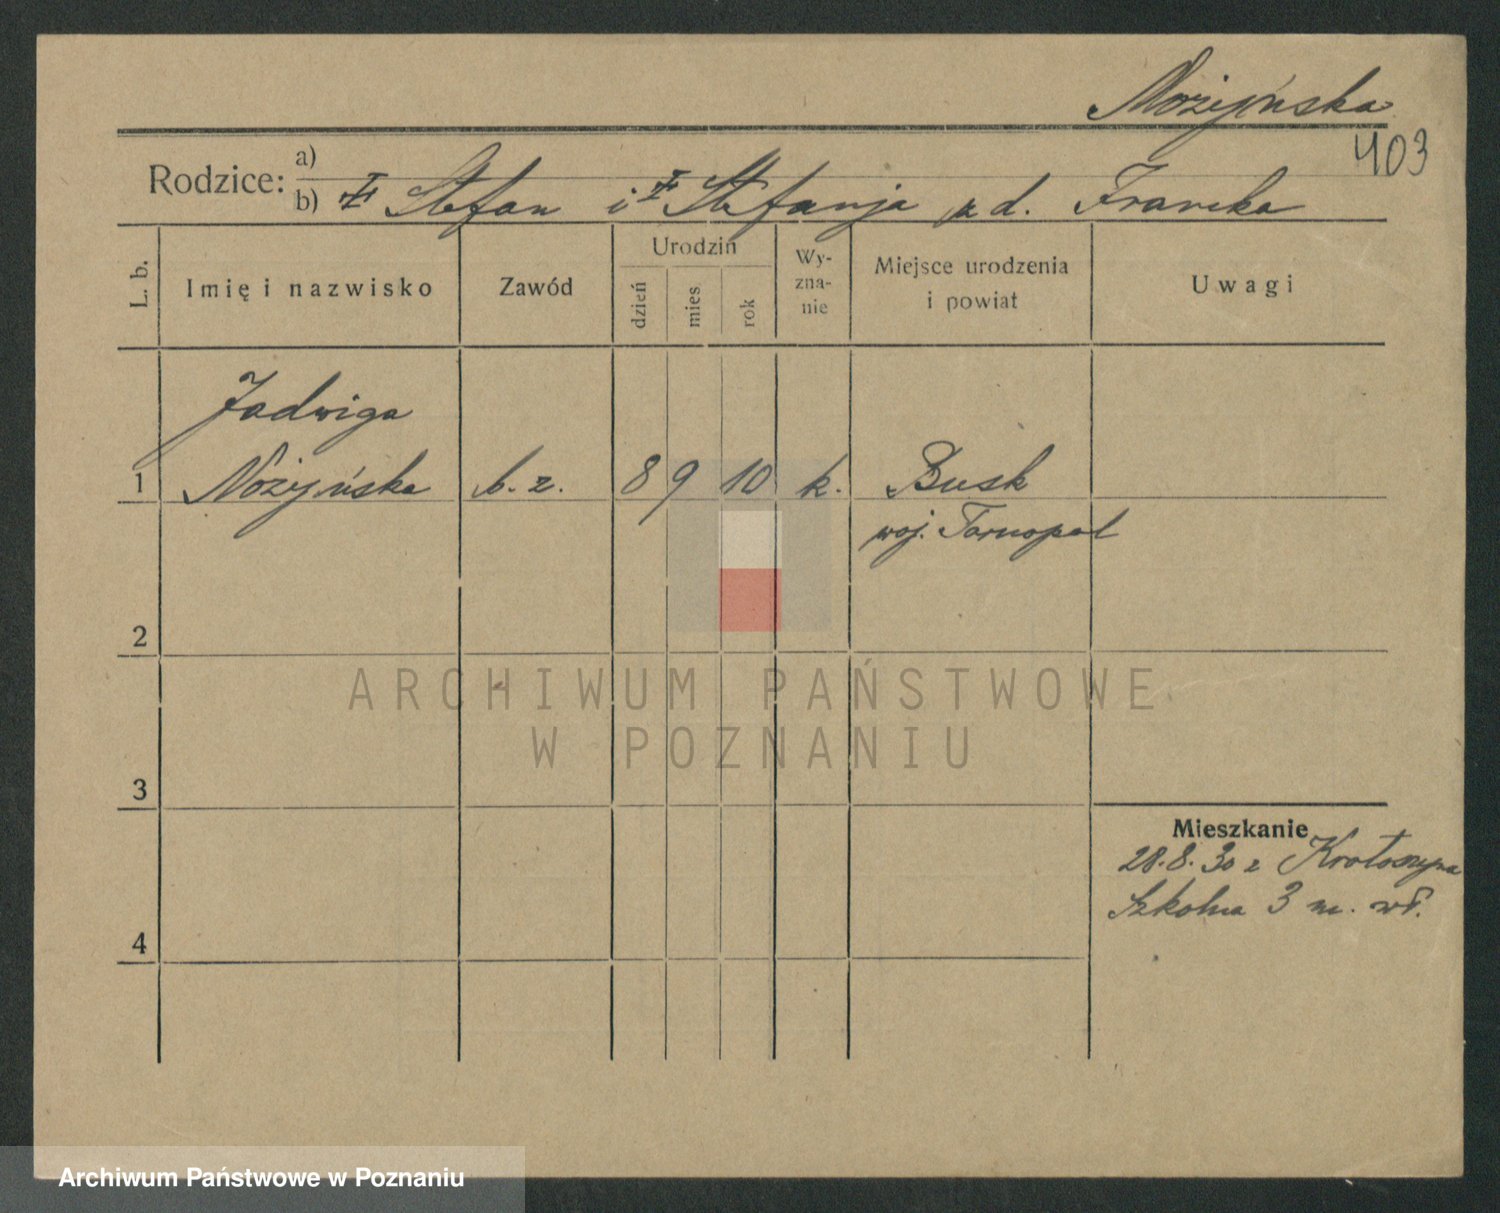 Nożyńska
403
Rodzice:
a)
b) Stefan i Stefanja z d. Franeka
L. b.
Imię i nazwisko
Zawód
Urodzin
dzień
mies.
rok
Wy-
zna-
nie
Miejsce urodzenia
i powiat
Uwagi
Jadwiga
1 Nożyńska b. z. 8 9 10 k. Busk
woj. Tarnopol
2
ARCHIWUM PAŃSTWOWE
W POZNANIU
3
Mieszkanie
28.8.30 z Krotoszyna
Szkolna 3 m. wł.
4
Archiwum Państwowe w Poznaniu